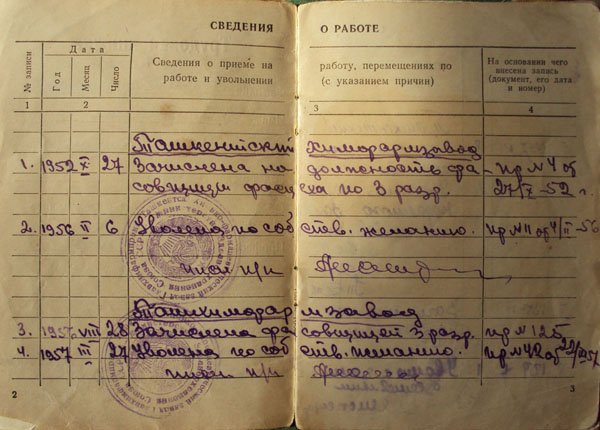 СВЕДЕНИЯ О РАБОТЕ
№ записи
Дата
Год
Месяц
Число
Сведения о приеме на работу, перемещениях по
работе и увольнении (с указанием причин)
На основании чего
внесена запись
(документ, его дата
и номер)
1 2 3 4
Ташкентский химфармзавод
1. 1952 X 27 Зачислена на должность фа- пр № 4 от
совщицы фасц ха по 3 разр. 27/X-52 г.
2. 1956 II 6 Уволена по соб ств. желанию. пр № 11 от 4/II-56
Ташхимфар мзавод
3. 1956 VIII 28 Зачислена фа совщицей 3 разр. пр № 125
4. 1957 III 27 Уволена по соб ств. желанию. пр № 42 от
2 3